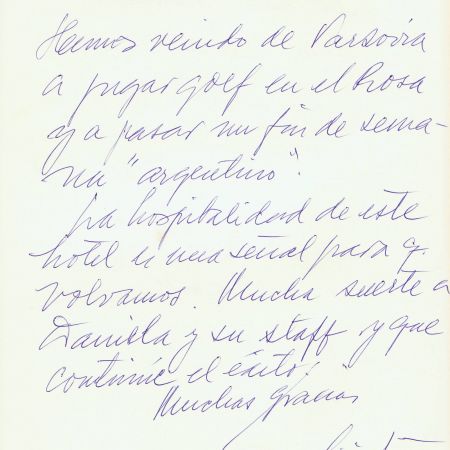 Hemos venido de Varsovia
a jugar golf en el Rosa
y a pasar un fin de sema-
na "argentino".
La hospitalidad de este
hotel es una señal para q.
volvamos. Mucha suerte a
Daniela y su staff y que
continúe el éxito!
Muchas gracias